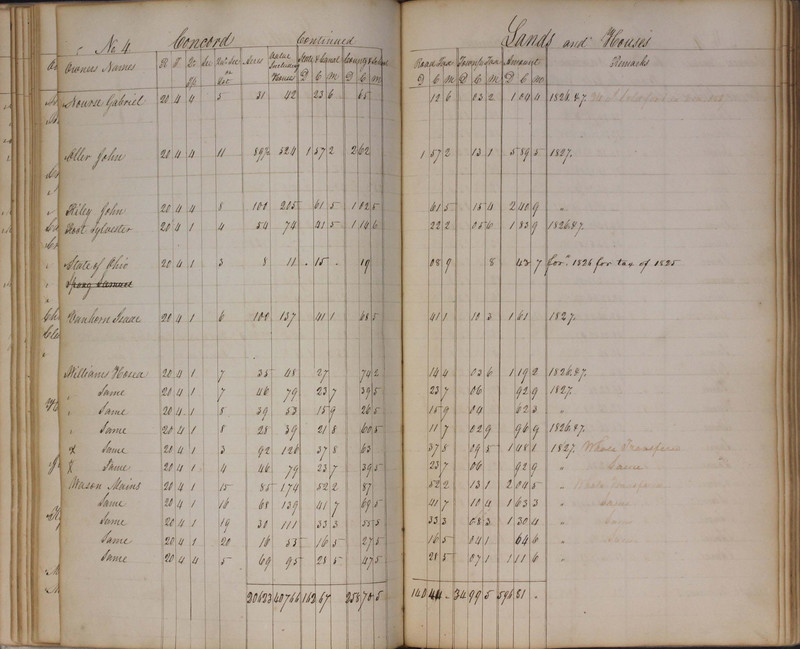 No 4 Concord Continued Lands and Houses
Owners Names R T Acres Value Including Houses State & Canal County & School Road Tax Township Tax Amount Remarks
or Lot
D C M D C M D C M D C M D C M
Gabriel 20 4 4 5 31 42 23 6 65 12 6 03 2 1 04 4 1826.&7.
Oller John 20 4 4 11 89¾ 524 1 57 2 2 62 1 57 2 13 1 5 89 5 1827.
Riley John 20 4 4 8 100 205 61 5 1 02 5 61 5 15 4 2 40 9 "
Root Sylvester 20 4 1 4 54 74 41 5 1 14 6 22 2 05 6 1 83 9 1826&7.
State of Ohio 20 4 1 3 8 11 15 19 08 9 8 43 7 for 1826 for tax of 1825
Vanhorn Isaac 20 4 1 6 100 137 41 1 68 5 41 1 10 3 1 61 1827.
Williams Hosea 20 4 1 7 35 48 27 74 2 14 4 03 6 1 19 2 1826.&7.
" Same 20 4 1 7 46 79 23 7 39 5 23 7 06 92 9 1827.
" Same 20 4 1 8 39 53 15 9 26 5 15 9 04 62 3 "
" Same 20 4 1 8 28 39 21 8 60 5 11 7 02 9 96 9 1826.&7.
x Same 20 4 1 3 92 126 37 8 63 37 8 09 5 1 48 1 1827. Whole Transferred
x Same 20 4 1 4 46 79 23 7 39 5 23 7 06 92 9 " Same
Wason Mains 20 4 1 15 85 174 52 2 87 52 2 13 1 2 04 5 " Whole Transferred
Same 20 4 1 16 68 139 41 7 69 5 41 7 10 4 1 63 3 " Same
Same 20 4 1 19 30 111 33 3 55 5 33 3 08 3 1 30 4 " Same
Same 20 4 1 20 16 55 16 5 27 5 16 5 04 1 64 6 " Same
Same 20 4 4 5 69 95 28 5 47 5 28 5 07 1 1 11 6 "
20623 40766 162 67 258 78 5 140 44 34 99 5 596 81